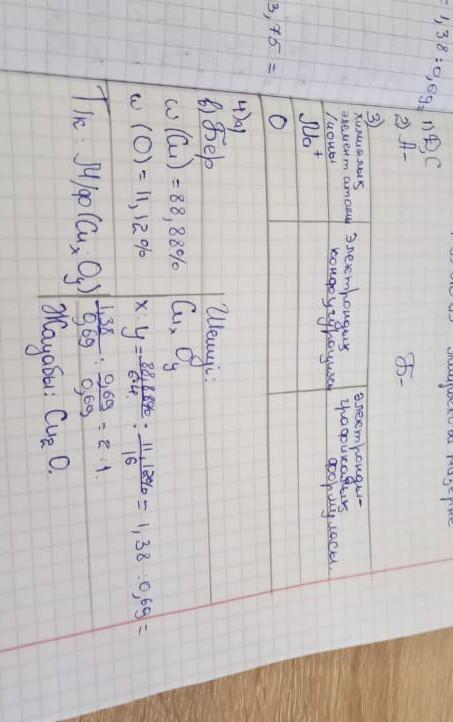 = 1,38 : 0,69 =
3,75 =
1) Д C
2) А-
Б-
3)
химиялық элемент атомы /ионы
Электрондық конфигурациясы
электронды-графикалық формуласы
Na⁺
O
4)
б) Бер
w (Cu) = 88,88%
w (O) = 11,12%
Т/к: М/ф (CuₓOᵧ)
Шешуі:
Cuₓ Oᵧ
x : y = 88,88%/64 : 11,12%/16 = 1,38 : 0,69 =
1,38/0,69 : 0,69/0,69 = 2 : 1.
Жауабы: Cu₂O.